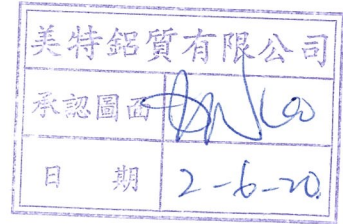 美特鋁質有限公司
承認圖面
日 期 2-6-20.